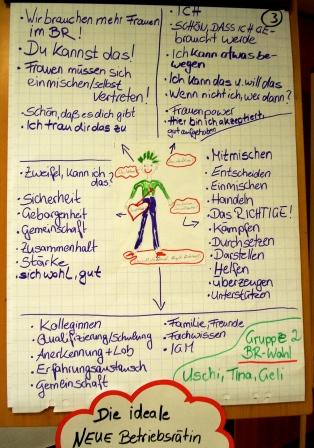 • Wir brauchen mehr Frauen
im BR!
• Du kannst das!
• Frauen müssen sich
einmischen/selbst
vertreten!
• Schön, daß es dich gibt
• Ich trau dir das zu
③
• ICH
• SCHÖN, DASS ICH GE-
BRAUCHT WERDE
• Ich kann etwas be-
wegen
• Ich kann das u. will das
• Wenn nicht ich, wer dann?
• Frauenpower
• Hier bin ich akzeptiert,
gut aufgehoben
• Zweifel, kann ich
das?
• Sicherheit
• Geborgenheit
• Gemeinschaft
• Zusammenhalt
• Stärke
• sich wohl, gut
• Mitmischen
• Entscheiden
• Einmischen
• Handeln
• Das RICHTIGE!
• Kämpfen
• Durchsetzen
• Darstellen
• Helfen
• überzeugen
• Unterstützen
• Kolleginnen
• Qualifizierung/Schulung
• Anerkennung + Lob
• Erfahrungsaustausch
• Gemeinschaft
• Familie, Freunde
• Fachwissen
• IGM
Gruppe 2
BR-Wahl
Uschi, Tina, Geli
Die ideale
NEUE Betriebsrätin